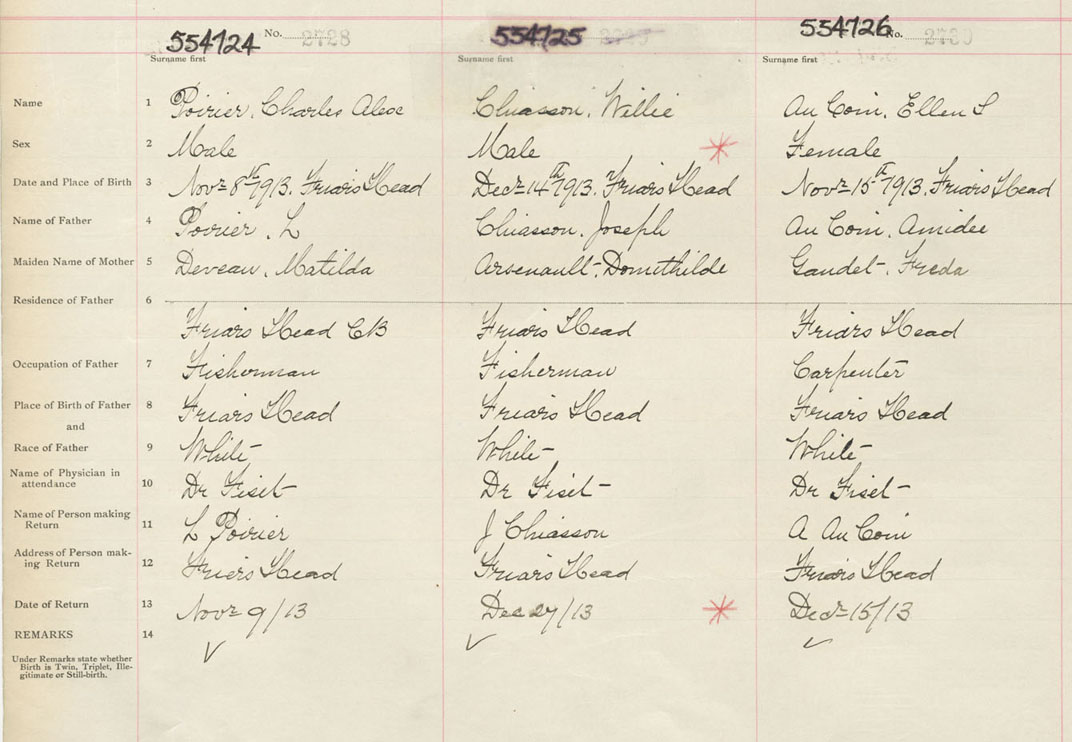 554724 No. 2728 554725 554726 No. 2730
Surname first Surname first Surname first
Name 1 Poirier, Charles Alex Chiasson, Willie Au Coin, Ellen S
Sex 2 Male Male Female
Date and Place of Birth 3 Novr 8th 1913. Friars Head Decr 14th 1913. Friars Head Novr 15th 1913. Friars Head
Name of Father 4 Poirier, L Chiasson, Joseph Au Coin, Amidee
Maiden Name of Mother 5 Deveau, Matilda Arsenault, Domithilde Gaudet, Freda
Residence of Father 6
Friars Head CB Friars Head Friars Head
Occupation of Father 7 Fisherman Fisherman Carpenter
Place of Birth of Father 8 Friars Head Friars Head Friars Head
and
Race of Father 9 White White White
Name of Physician in
attendance 10 Dr Fiset Dr Fiset Dr Fiset
Name of Person making
Return 11 L Poirier J Chiasson A Au Coin
Address of Person mak-
ing Return 12 Friars Head Friars Head Friars Head
Date of Return 13 Novr 9/13 Dec 27/13 Decr 15/13
REMARKS 14
Under Remarks state whether
Birth is Twin, Triplet, Ille-
gitimate or Still-birth.